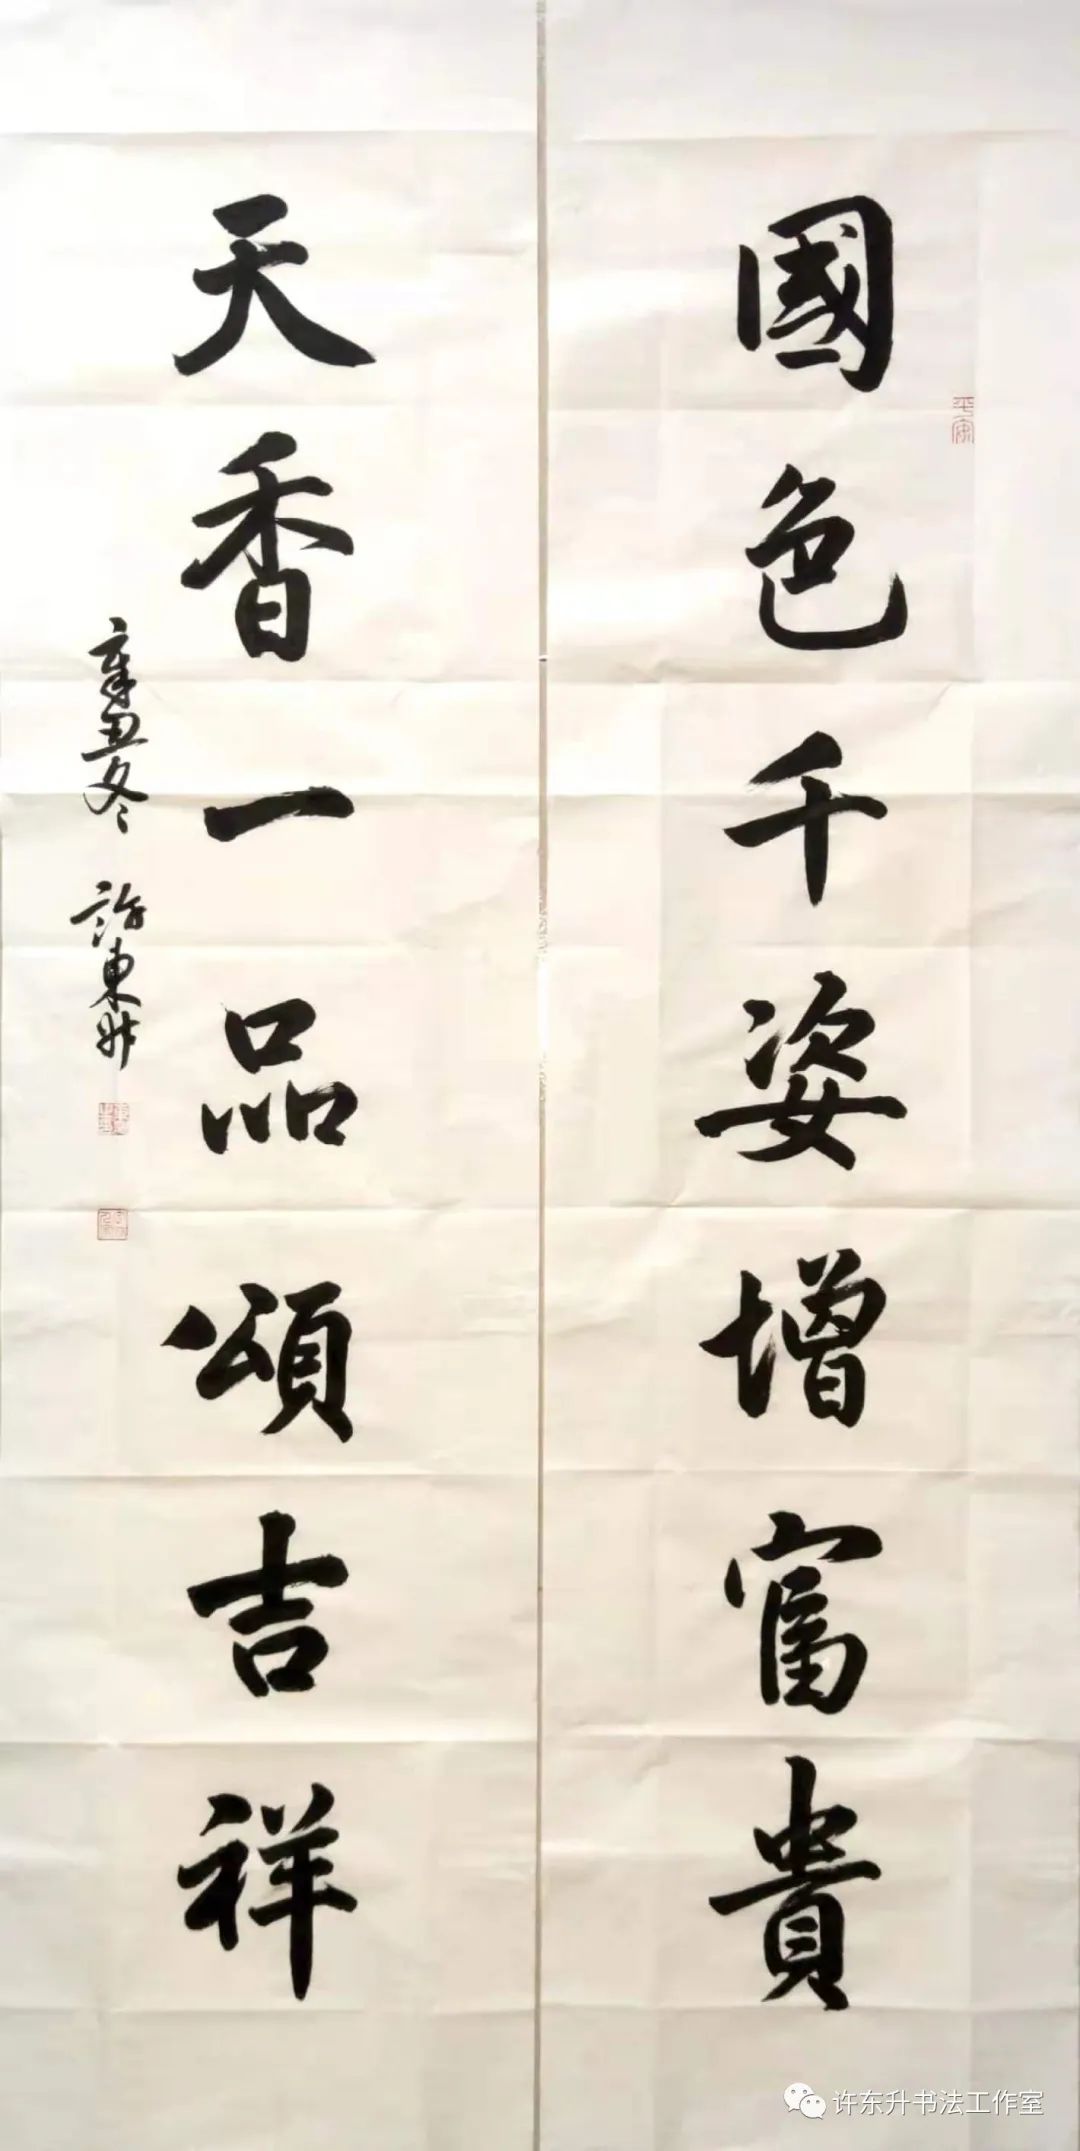 國色千姿增富貴
天香一品頌吉祥
辛丑冬 許東昇
平安
许东升书法工作室